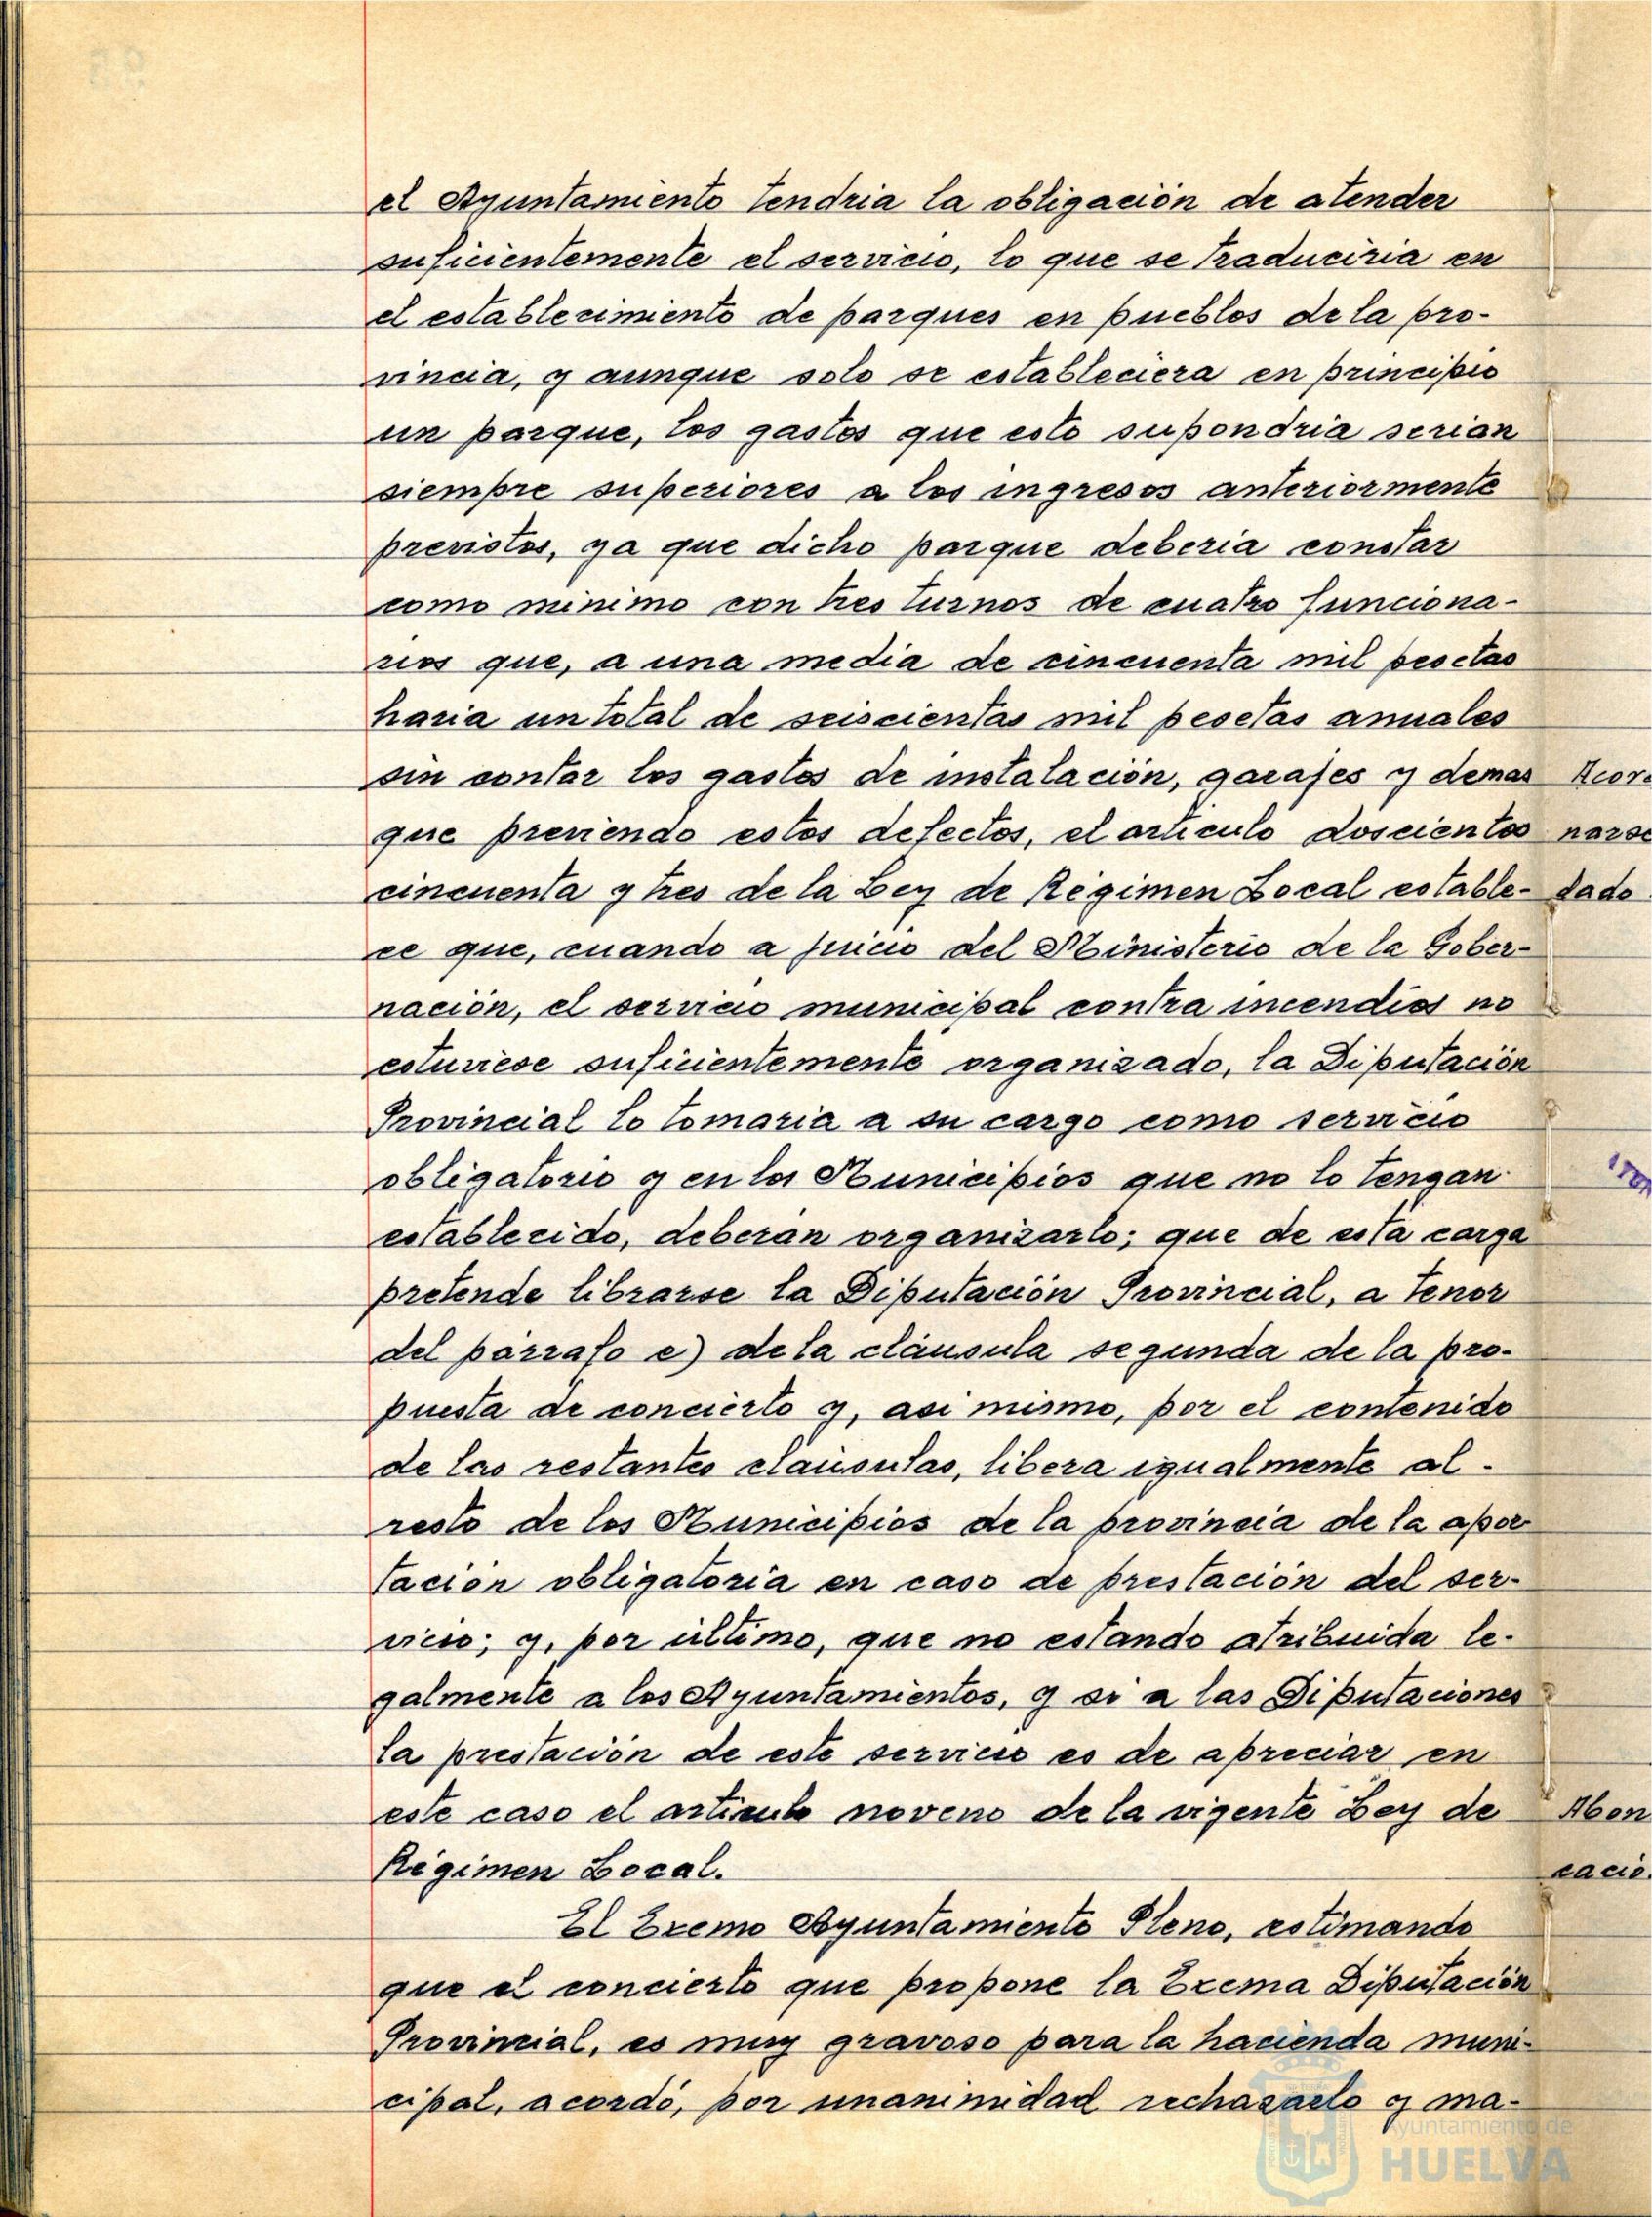 el Ayuntamiento tendria la obligación de atender
suficientemente el servicio, lo que se traduciria en
el establecimiento de parques en pueblos de la pro-
vincia, y aunque solo se estableciera en principio
un parque, los gastos que esto supondria serian
siempre superiores a los ingresos anteriormente
previstos, ya que dicho parque deberia constar
como minimo con tres turnos de cuatro funciona-
rios que, a una media de cincuenta mil pesetas
haria un total de seiscientas mil pesetas anuales
sin contar los gastos de instalación, garajes y demas
que previendo estos defectos, el articulo doscientos
cincuenta y tres de la Ley de Régimen Local estable-
ce que, cuando a juicio del Ministerio de la Gober-
nación, el servicio municipal contra incendios no
estuviese suficientemente organizado, la Diputación
Provincial lo tomaria a su cargo como servicio
obligatorio y en los Municipios que no lo tengan
establecido, deberán organizarlo; que de esta carga
pretende librarse la Diputación Provincial, a tenor
del párrafo e) de la cláusula segunda de la pro-
puesta de concierto y, asi mismo, por el contenido
de las restantes claúsulas, libera igualmente al
resto de los Municipios de la provincia de la apor
tación obligatoria en caso de prestación del ser-
vicio; y, por último, que no estando atribuida le-
galmente a los Ayuntamientos, y si a las Diputaciones
la prestación de este servicio es de apreciar en
este caso el articulo noveno de la vigente Ley de
Régimen Local.
El Excmo Ayuntamiento Pleno, estimando
que el concierto que propone la Excma Diputación
Provincial, es muy gravoso para la hacienda muni-
cipal, acordó, por unanimidad rechazarlo y ma-
Ayuntamiento de
HUELVA